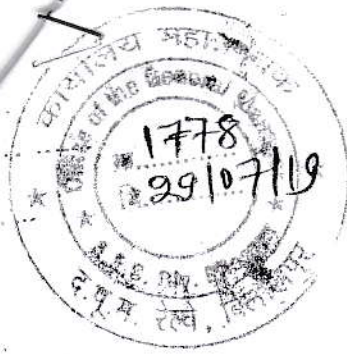 कार्यालय महा
Office of the General
1778
29/07/19
S.E.C. Rly.
द.पू.म. रेल्वे, बिलासपुर